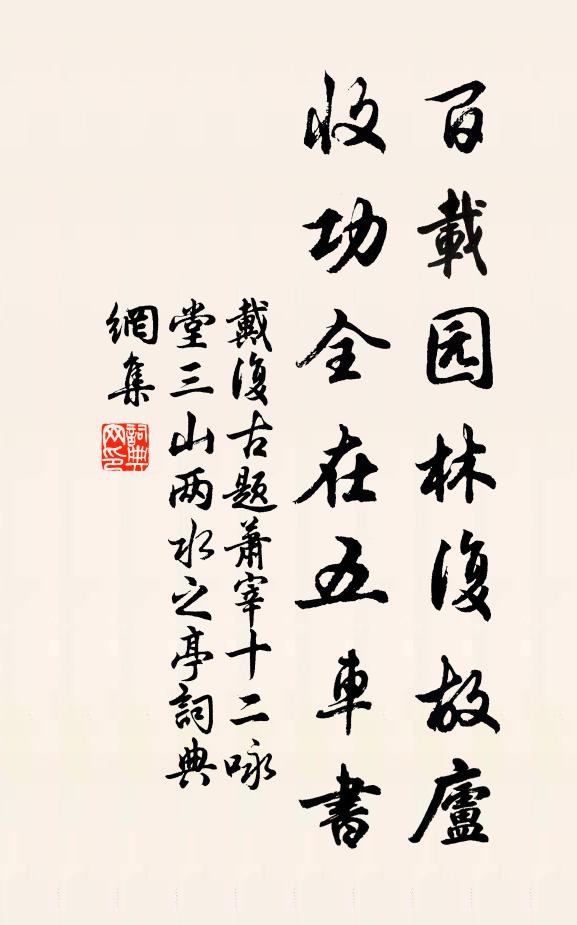 百載园林復故廬
收功全在五車書
戴復古題蕭宰十二咏
堂三山两水之亭詞典
網集
詞典
网印